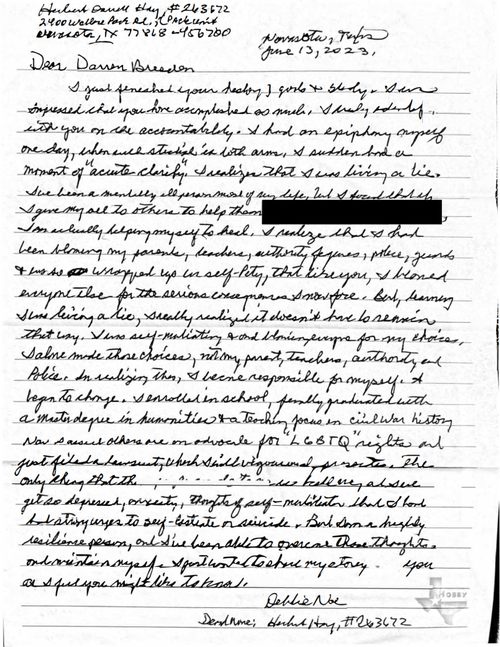 Herbert Darrell Hay, #263672
2400 Wallace Pack Rd., Pack Unit
Navasota, TX 77868-
Navasota, Texas
June 13, 2023,
Dear Darren Breeden
I just finished your history, goals & study. I am
impressed that you have accomplished so much. I truly identify
with you on the accountability. I had an epiphany myself
one day, when with in both arms, I sudden had a
moment of "acute clarity". I realize that I was living a lie.
I've been a mentally ill person most of my life, but I found that if
I gave my all to others to help them
I'm actually helping myself to heal. I realize that I had
been blaming my parents, teachers, authority figures, police, guards
& was so wrapped up in self-Pity, that like you, I blamed
everyone else for the serious consequences I now face. But, learning
I was living a lie, I really realized it doesn't have to remain
that way. I was self-mutilating & and blaming for my choices.
I alone made those choices, not my parent, teachers, authority and
Police. In realizing this, I became responsible for myself. &
began to change. I enrolled in school, finally graduated with
a master degree in humanities & a teaching focus in civil war history
Now I assist others are an advocate for "LGBTQ" rights and
just filed a lawsuit, which I will The
only thing that the
get so depressed, anxiety, thoughts of self-mutilation that I have
had strong urges to self-castrate or suicide. But I am a highly
resilience person, and I've been able to overcome those thoughts.
and maintain myself. I just wanted to share my story. you
as I you might like to know!
Debbie Noe
Dead Name: Herbert Hay, #263672
HOBBY